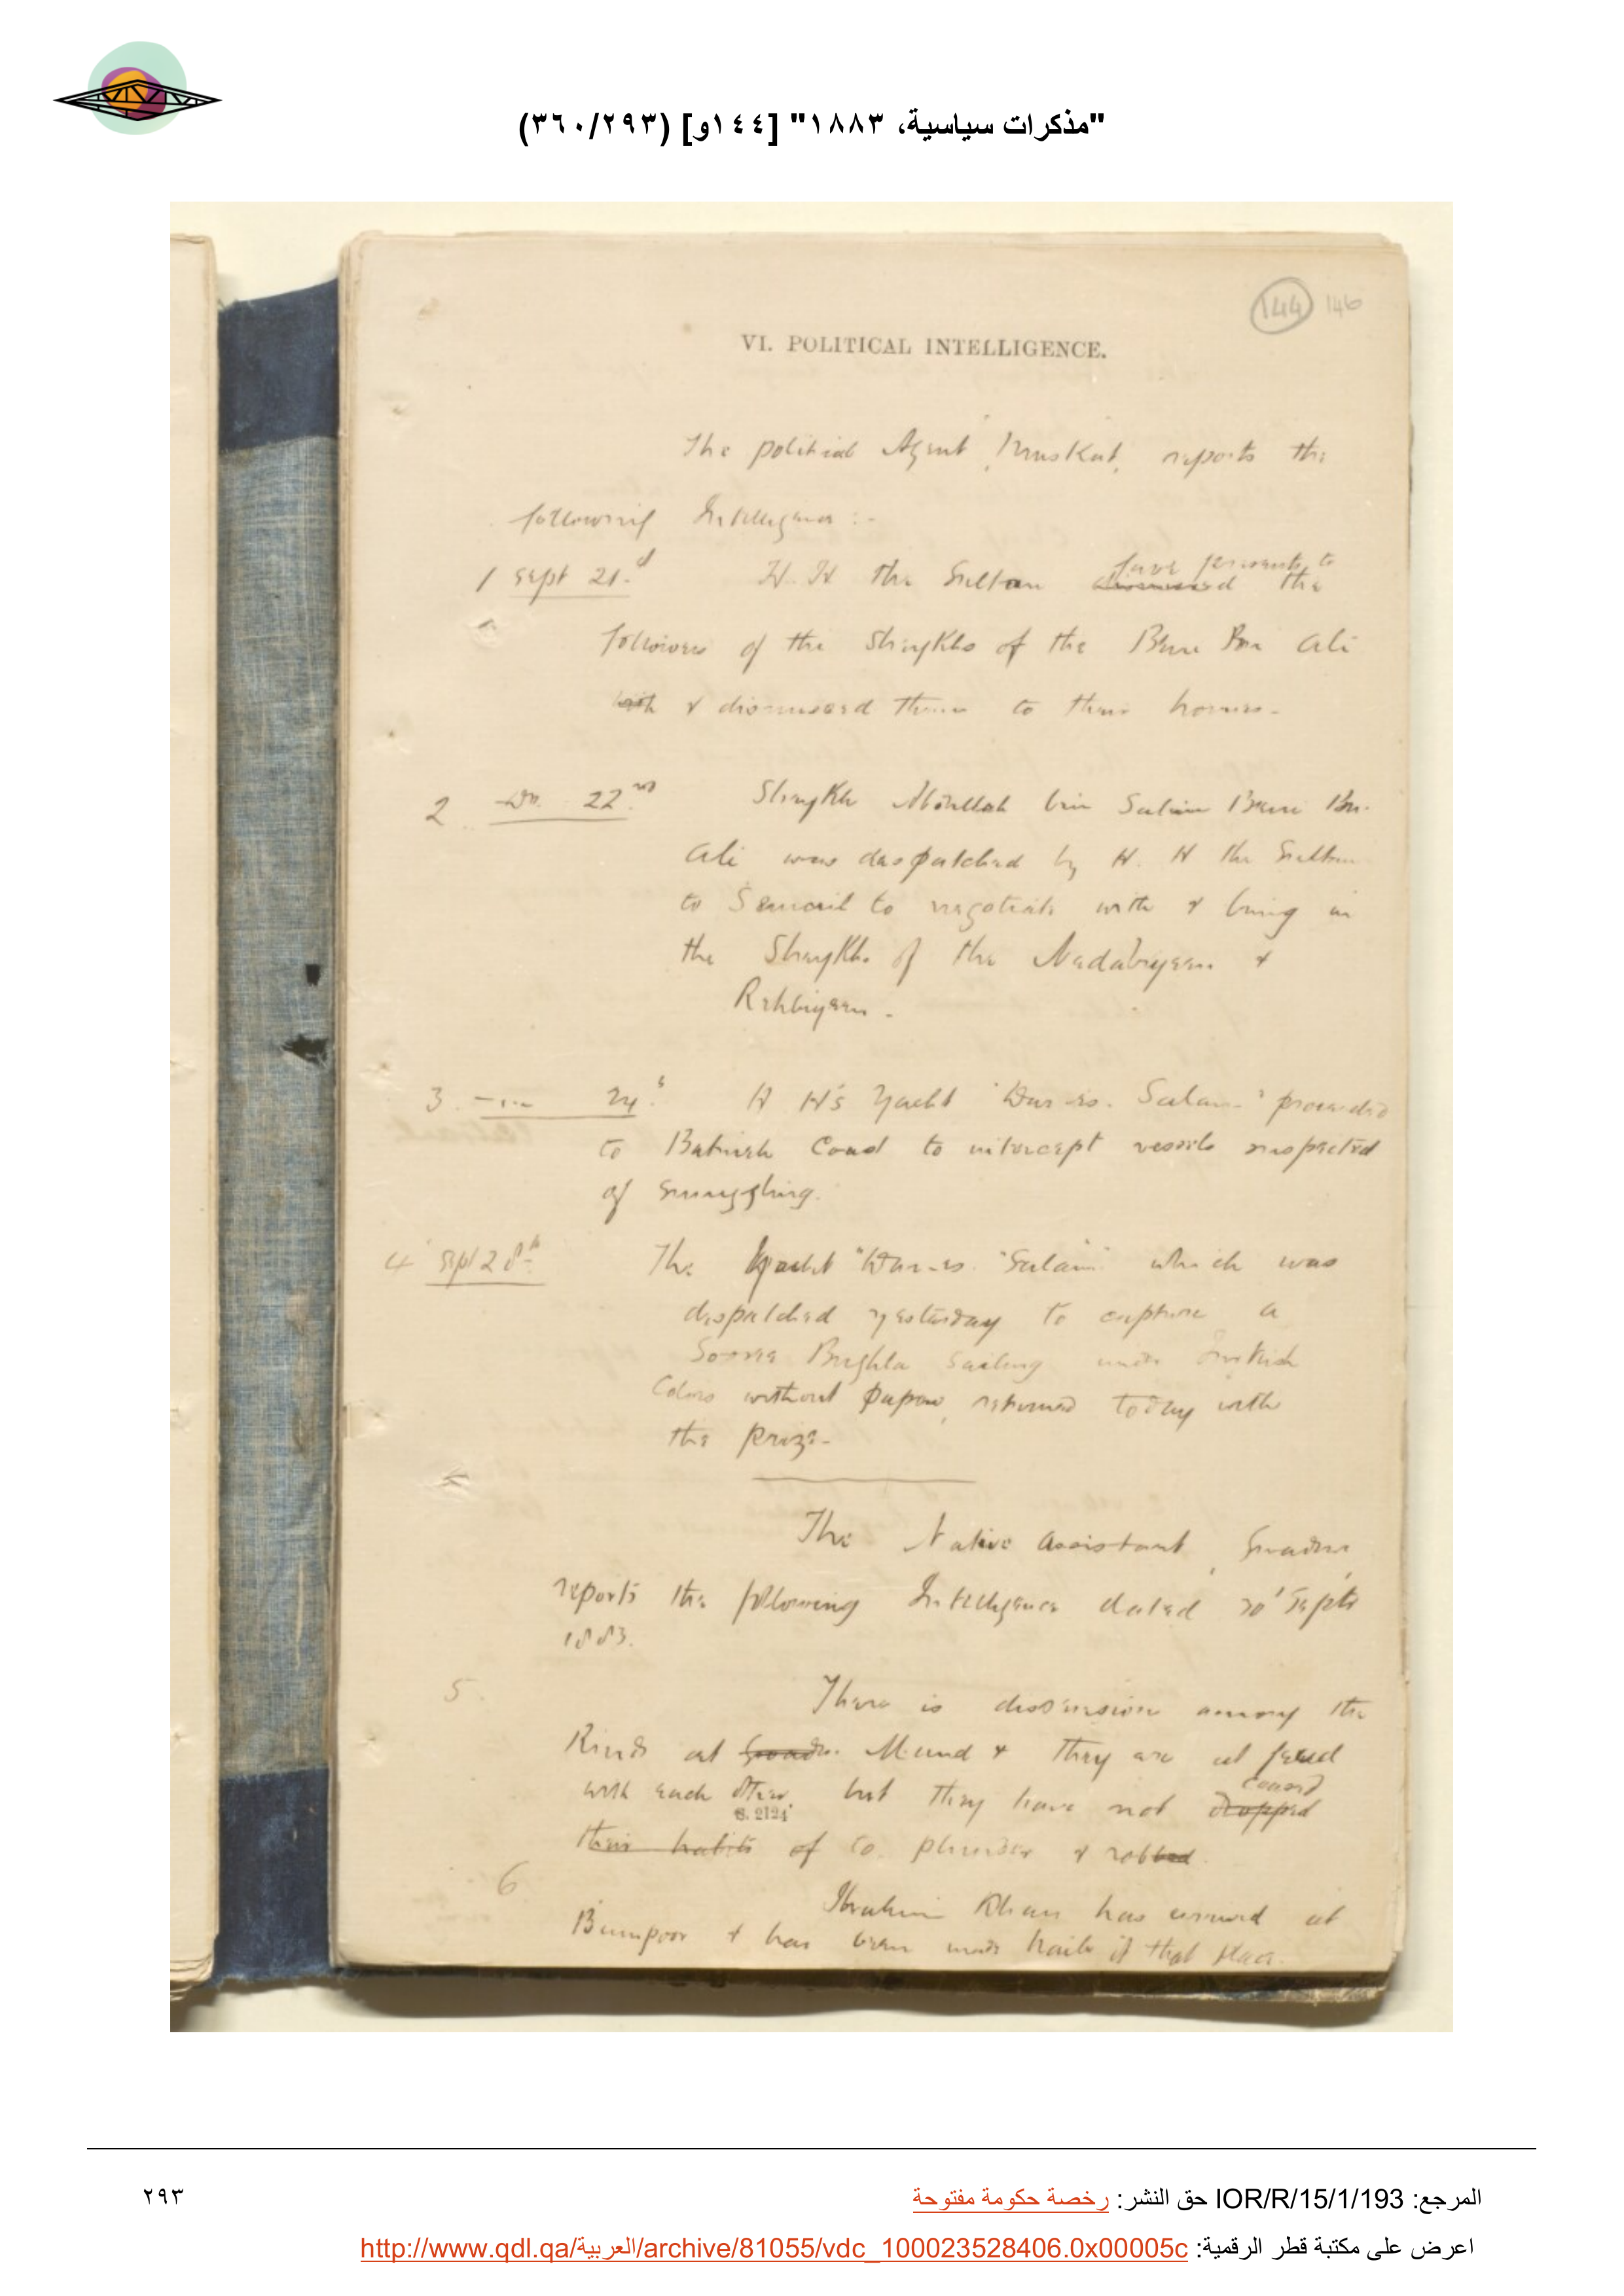 "مذكرات سياسية، ١٨٨٣" [١٤٤و] (٣٦٠/٢٩٣)
144 146
VI. POLITICAL INTELLIGENCE.
The political Agent, Muskat, reports the
following Intelligence :-
1 Sept 21.d H. H the Sultan gave presents to dismissed the
followers of the Sheykhs of the Beni Bu Ali
with & dismissed them to their homes.
2 Do. 22nd Sheykh Abdullah bin Salim Beni Bu-
Ali was despatched by H. H the Sultan
to Semail to negotiate with & bring in
the Sheykhs of the Nadabiyeen &
Rehbiyeen.
3. 24 H H's Yacht "Dar-es-Salam" proceeded
to Batineh Coast to intercept vessels suspected
of smuggling.
4 Sept 28th The Yacht "Dar-es-Salam" which was
despatched yesterday to capture a
Sooree Bughla sailing under Turkish
Colors without papers, returned today with
the prize-
The Native Assistant, Gwadur,
reports the following Intelligence dated 30 Septr
1883.
5. There is dissension among the
Rinds at Gwadur Mund & they are at feud
with each other, but they have not ceased dropped
S. 2124
their habits of to plunder & robbed.
6 Ibrahim Khan has arrived at
Bumpoor & has been made Naib of that place.
٢٩٣
المرجع: IOR/R/15/1/193 حق النشر: رخصة حكومة مفتوحة
اعرض على مكتبة قطر الرقمية: http://www.qdl.qa/العربية/archive/81055/vdc_100023528406.0x00005c